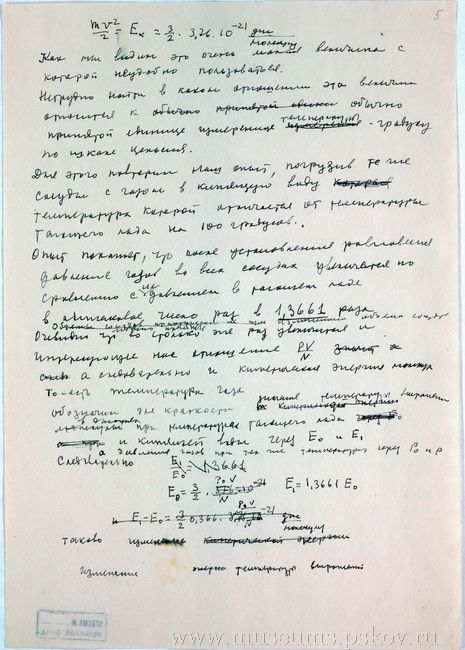 5
mv²/2 = Eк = 3/2 · 3,76 · 10⁻²¹ дж/молекул
Как мы видим это очень малая величина с
которой неудобно пользоваться.
Нетрудно найти в каком отношении эта величина
относится к обычно принятой обычно
принятой единице измерения температуры - градусу
по шкале Цельсия.
Для этого повторим наш опыт, погрузив те же
сосуды с газом в кипящую воду
температура которой отличается от температуры
тающего льда на 100 градусов.
Опыт покажет, что после установления равновесия
давление газов во всех сосудах увеличится по
сравнению с их давлением в тающем льде
в одинаковое число раз в 1,3661 раза
Очевидно что во столько же раз увеличится и
интересующее нас отношение PV/N
а следовательно и кинетическая энергия
То-есть температура газа
обозначим для краткости значение температуры
при температурах тающего льда
и кипящей воды через E₀ и E₁
а давления газов при тех же температурах через P₀ и P
Следовательно E₁/E₀ = 1,3661
E₀ = 3/2 · P₀V/N E₁ = 1,3661 E₀
E₁-E₀ = 3/2 0,366 · P₀V/N дж/молекул
таково изменение кинетической энергии
Изменение энергии температур
www.museums.pskov.ru